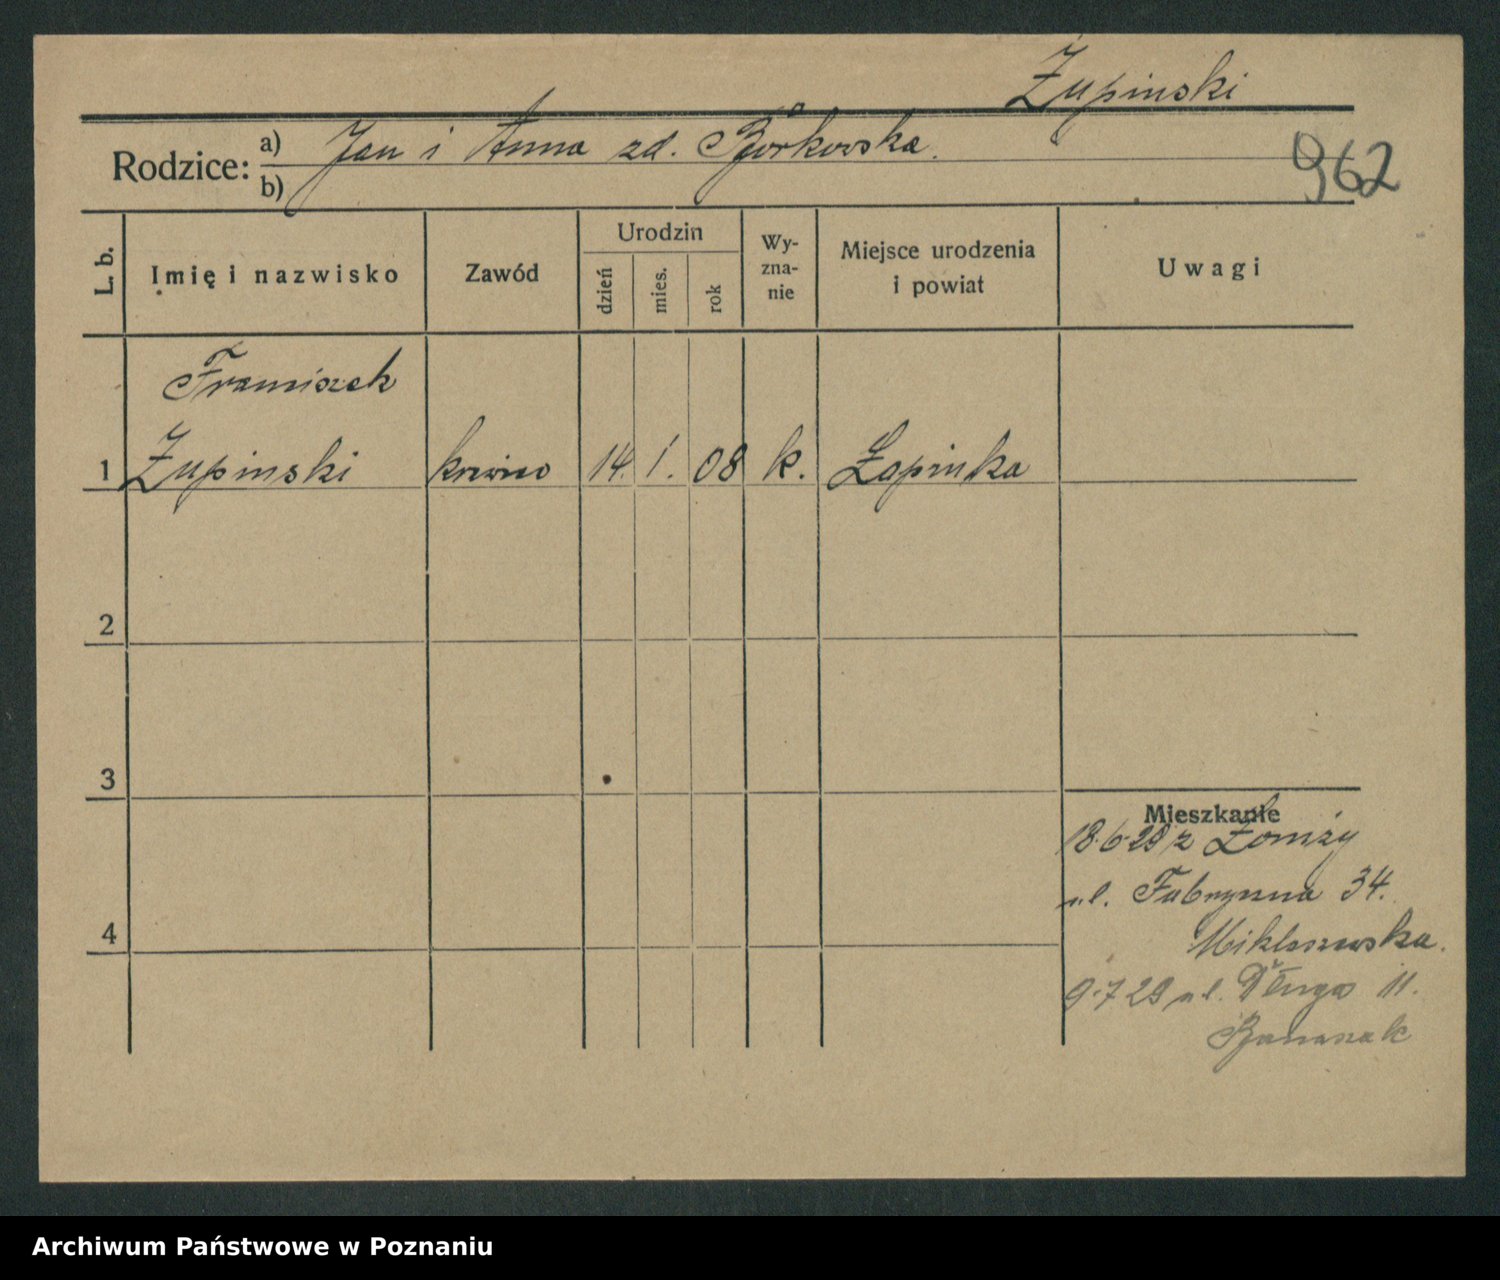 Żupinski
Rodzice: a) Jan i Anna zd. Bórkowska.
b)
962
L. b.
Imię i nazwisko
Zawód
Urodzin
dzień
mies.
rok
Wy-
zna-
nie
Miejsce urodzenia
i powiat
Uwagi
Franciszek
1 Żupinski krawiec 14. 1. 08 k. Łapinka
2
3
4
Mieszkanie
18.6.29 z Łomży
ul. Fabryczna 34.
9.7.29 ul. Długa 11.
Banaszak
Archiwum Państwowe w Poznaniu